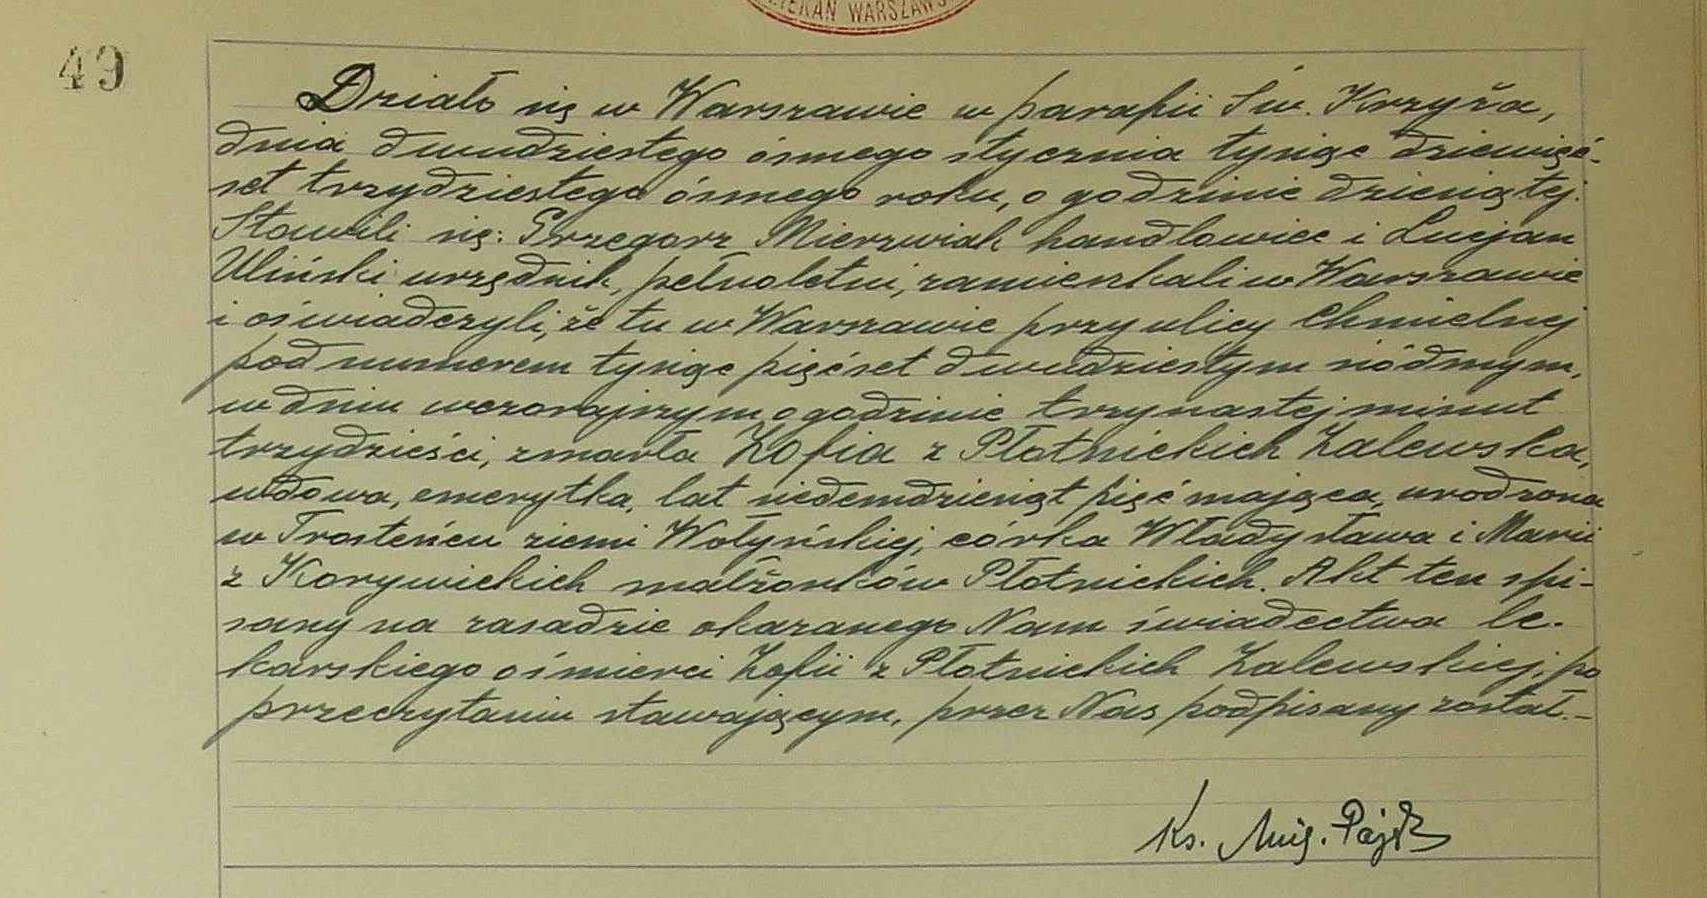 DZIEKAN WARSZAWS
49
Działo się w Warszawie w parafii Św. Krzyża,
dnia dwudziestego ósmego stycznia tysiąc dziewięć-
set trzydziestego ósmego roku, o godzinie dziesiątej.
Stawili się: Grzegorz Mierzwiak handlowiec i Lucjan
Uliński urzędnik, pełnoletni, zamieszkali w Warszawie
i oświadczyli, że tu w Warszawie przy ulicy Chmielnej
pod numerem tysiąc pięćset dwudziestym siódmym,
w dniu wczorajszym, o godzinie trzynastej minut
trzydzieści, zmarła Zofia z Płotnickich Zalewska,
wdowa, emerytka, lat siedemdziesiąt pięć mająca, urodzona
w Trosteńcu ziemi Wołyńskiej, córka Władysława i Marii
z Korywickich małżonków Płotnickich. Akt ten spi-
sany na zasadzie okazanego Nam świadectwa le-
karskiego o śmierci Zofii z Płotnickich Zalewskiej, po
przeczytaniu stawającym, przez Nas podpisany został.-
Ks.